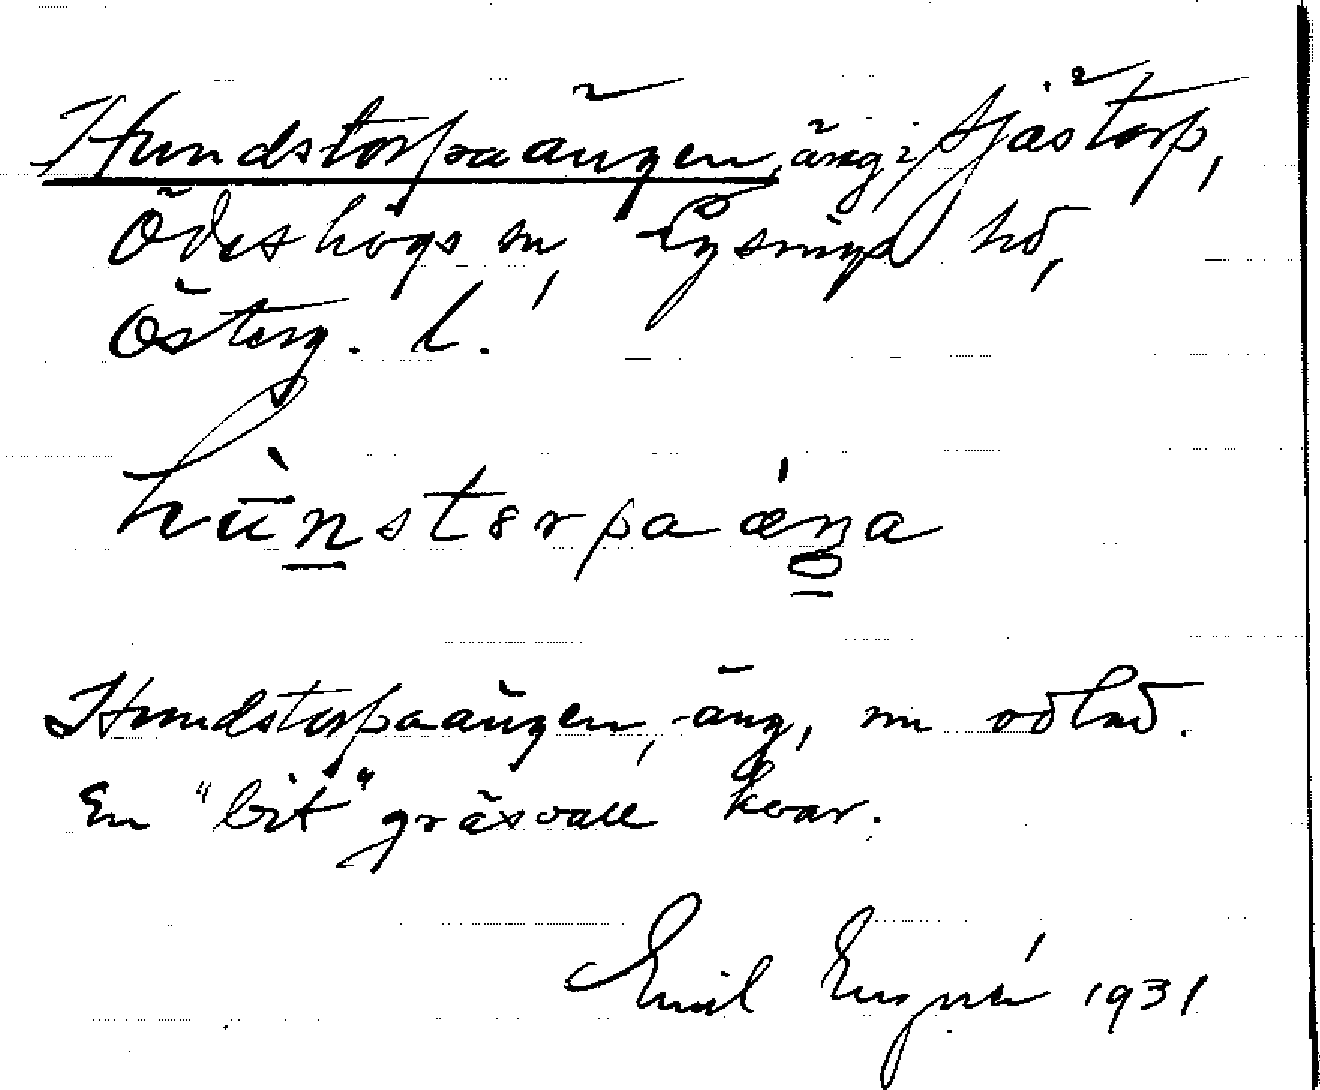 Hundstorpaängen, äng i Sjästorp,
Ödeshögs sn, Lysings hd,
Österg. l.
hùnstɜrpaǽŋa
Hundstorpaängen, äng, nu odlad.
En "bit" gräsvall kvar.
Emil 1931